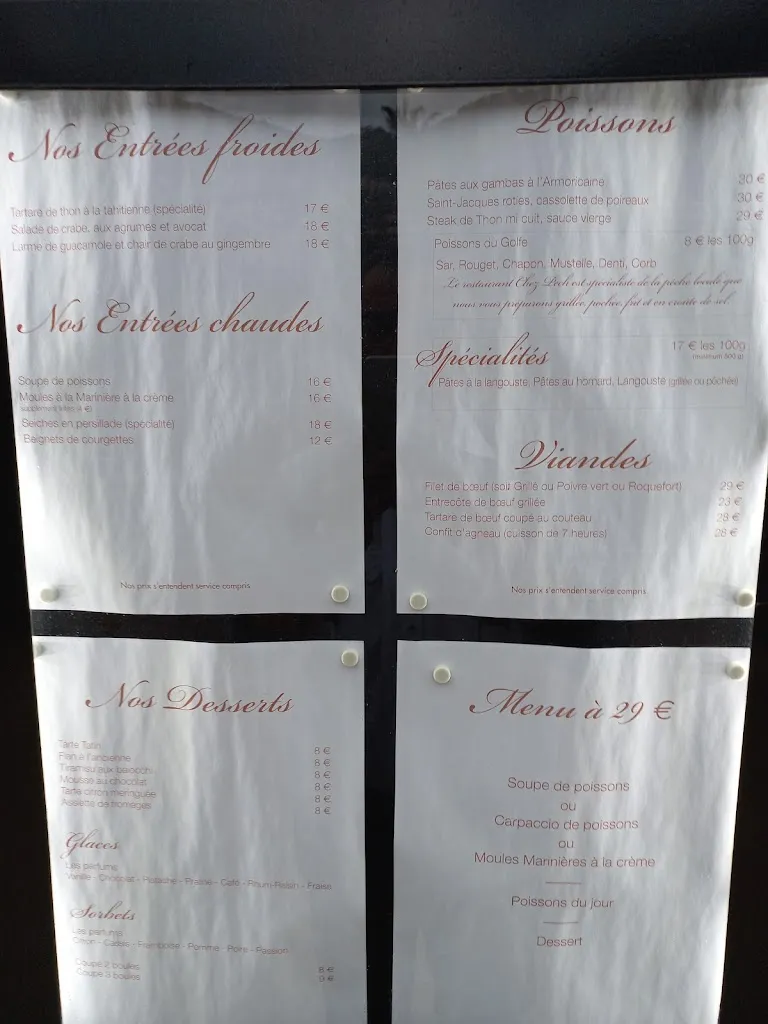 Nos Entrées froides
Tartare de thon à la tahitienne (spécialité) 17 €
Salade de crabe, aux agrumes et avocat 18 €
Larme de guacamole et chair de crabe au gingembre 18 €
Nos Entrées chaudes
Soupe de poissons 16 €
Moules à la Marinière à la crème 16 €
supplément frites (4 €)
Seiches en persillade (spécialité) 18 €
Beignets de courgettes 12 €
Nos prix s'entendent service compris.
Poissons
Pâtes aux gambas à l'Armoricaine 30 €
Saint-Jacques roties, cassolette de poireaux 30 €
Steak de Thon mi cuit, sauce vierge 29 €
Poissons du Golfe 8 € les 100g
Sar, Rouget, Chapon, Mustelle, Denti, Corb
Le restaurant Chez Poch est spécialiste de la pêche locale que
nous vous préparons grillée, pochée, frit et en croûte de sel
Spécialités 17 € les 100g
(minimum 600 g)
Pâtes à la langouste, Pâtes au homard, Langouste (grillée ou pôchée)
Viandes
Filet de bœuf (soit Grillé ou Poivre vert ou Roquefort) 29 €
Entrecôte de bœuf grillée 23 €
Tartare de bœuf coupé au couteau 28 €
Confit d'agneau (cuisson de 7 heures) 28 €
Nos prix s'entendent service compris.
Nos Desserts
Tarte Tatin 8 €
Flan à l'ancienne 8 €
Tiramisu aux 8 €
Mousse au chocolat 8 €
Tarte citron meringuée 8 €
Assiette de fromages 8 €
Glaces
Les parfums
Vanille - Chocolat - Pistache - Praliné - Café - Rhum-Raisin - Fraise
Sorbets
Les parfums
Citron - Cassis - Framboise - Pomme - Poire - Passion
Coupe 2 boules 8 €
Coupe 3 boules 9 €
Menu à 29 €
Soupe de poissons
ou
Carpaccio de poissons
ou
Moules Marinières à la crème
Poissons du jour
Dessert